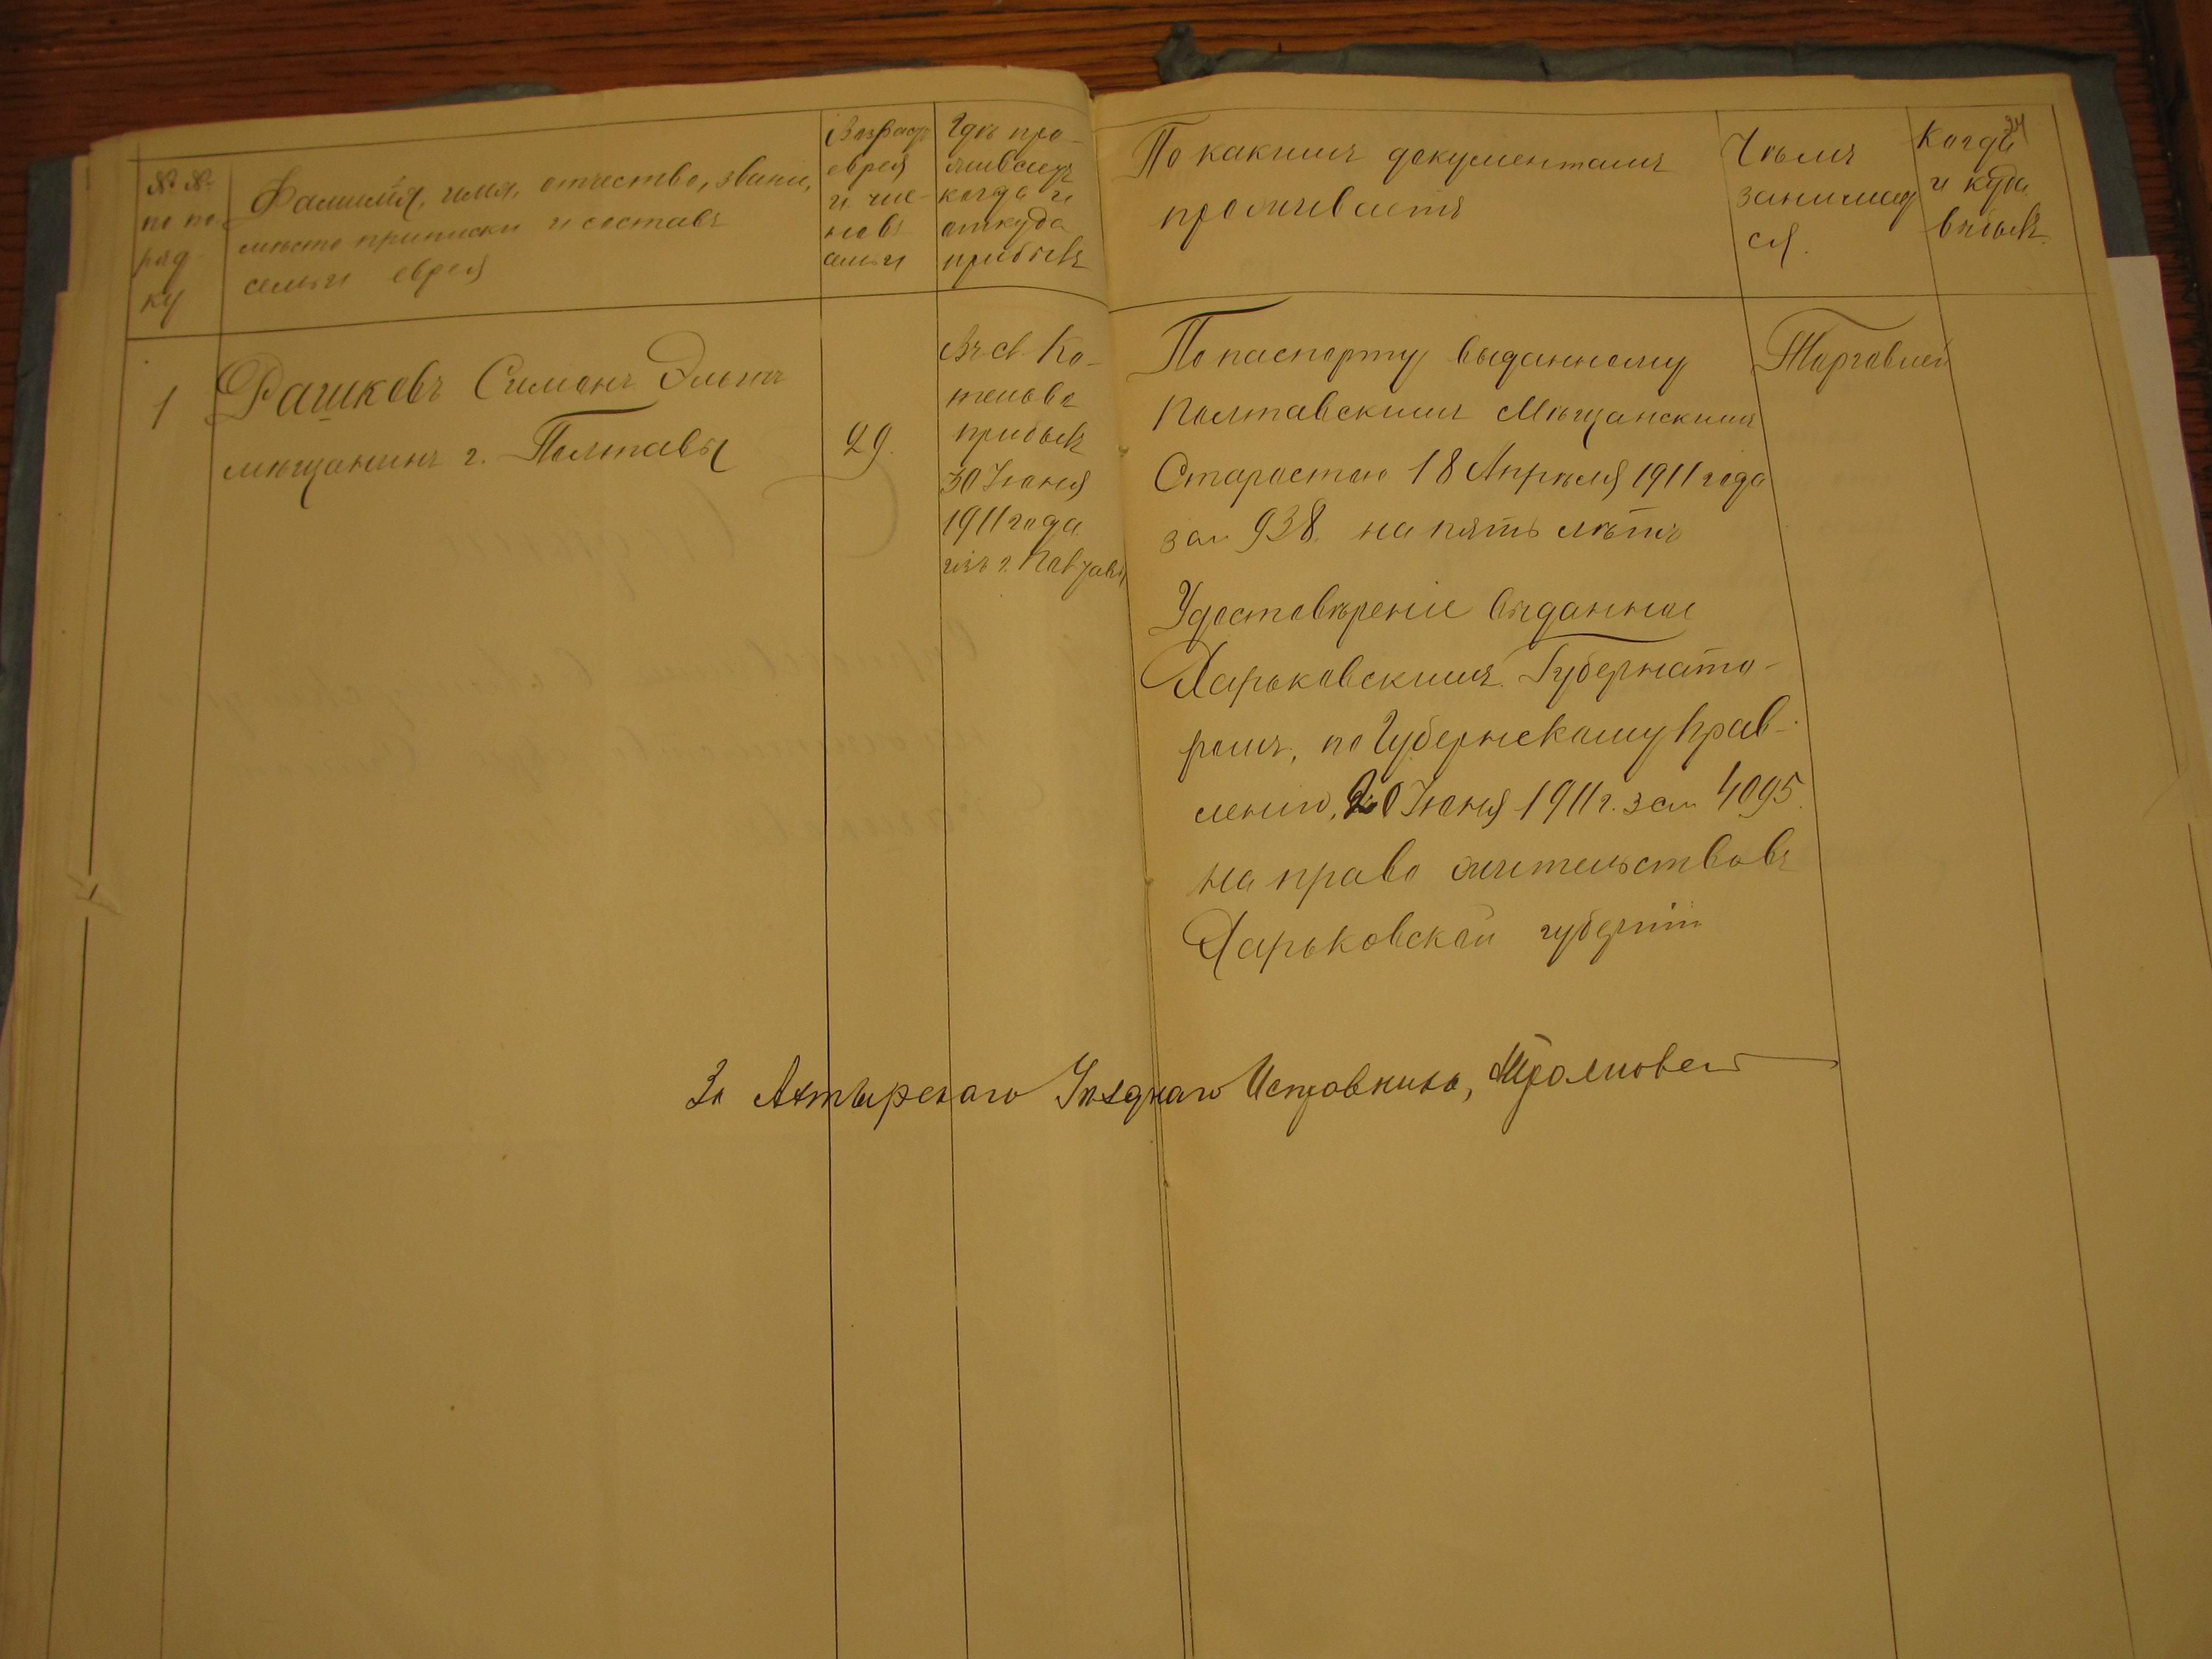 № №
по по-
ряд-
ку
Фамилія, имя, отчество, званіе,
мѣсто приписки и составъ
семьи еврея
Возрастъ
еврея
и чле-
новъ
семьи
Гдѣ про-
живаетъ
когда и
откуда
прибылъ
По какимъ документамъ
проживаетъ
Чѣмъ
занимает
ся.
Когда
и куда
выбылъ.
24
1
Рашковъ Симонъ Эльевъ
мѣщанинъ г. Полтавы
29.
Въ с. Ко-
телова
прибылъ
30 Іюня
1911 года
изъ г.
По паспорту выданному
Полтавскимъ Мѣщанскимъ
Старостою 18 Апрѣля 1911 года
за № 938, на пять лѣтъ
Удостовѣреніе выданное
Харьковскимъ Губернато-
ромъ, по Губернскому Прав-
ленію, 20 Іюня 1911 г. за № 4095.
на право жительства въ
Харьковской губерніи
Торговлей
За Ахтырскаго Уѣзднаго Исправника,